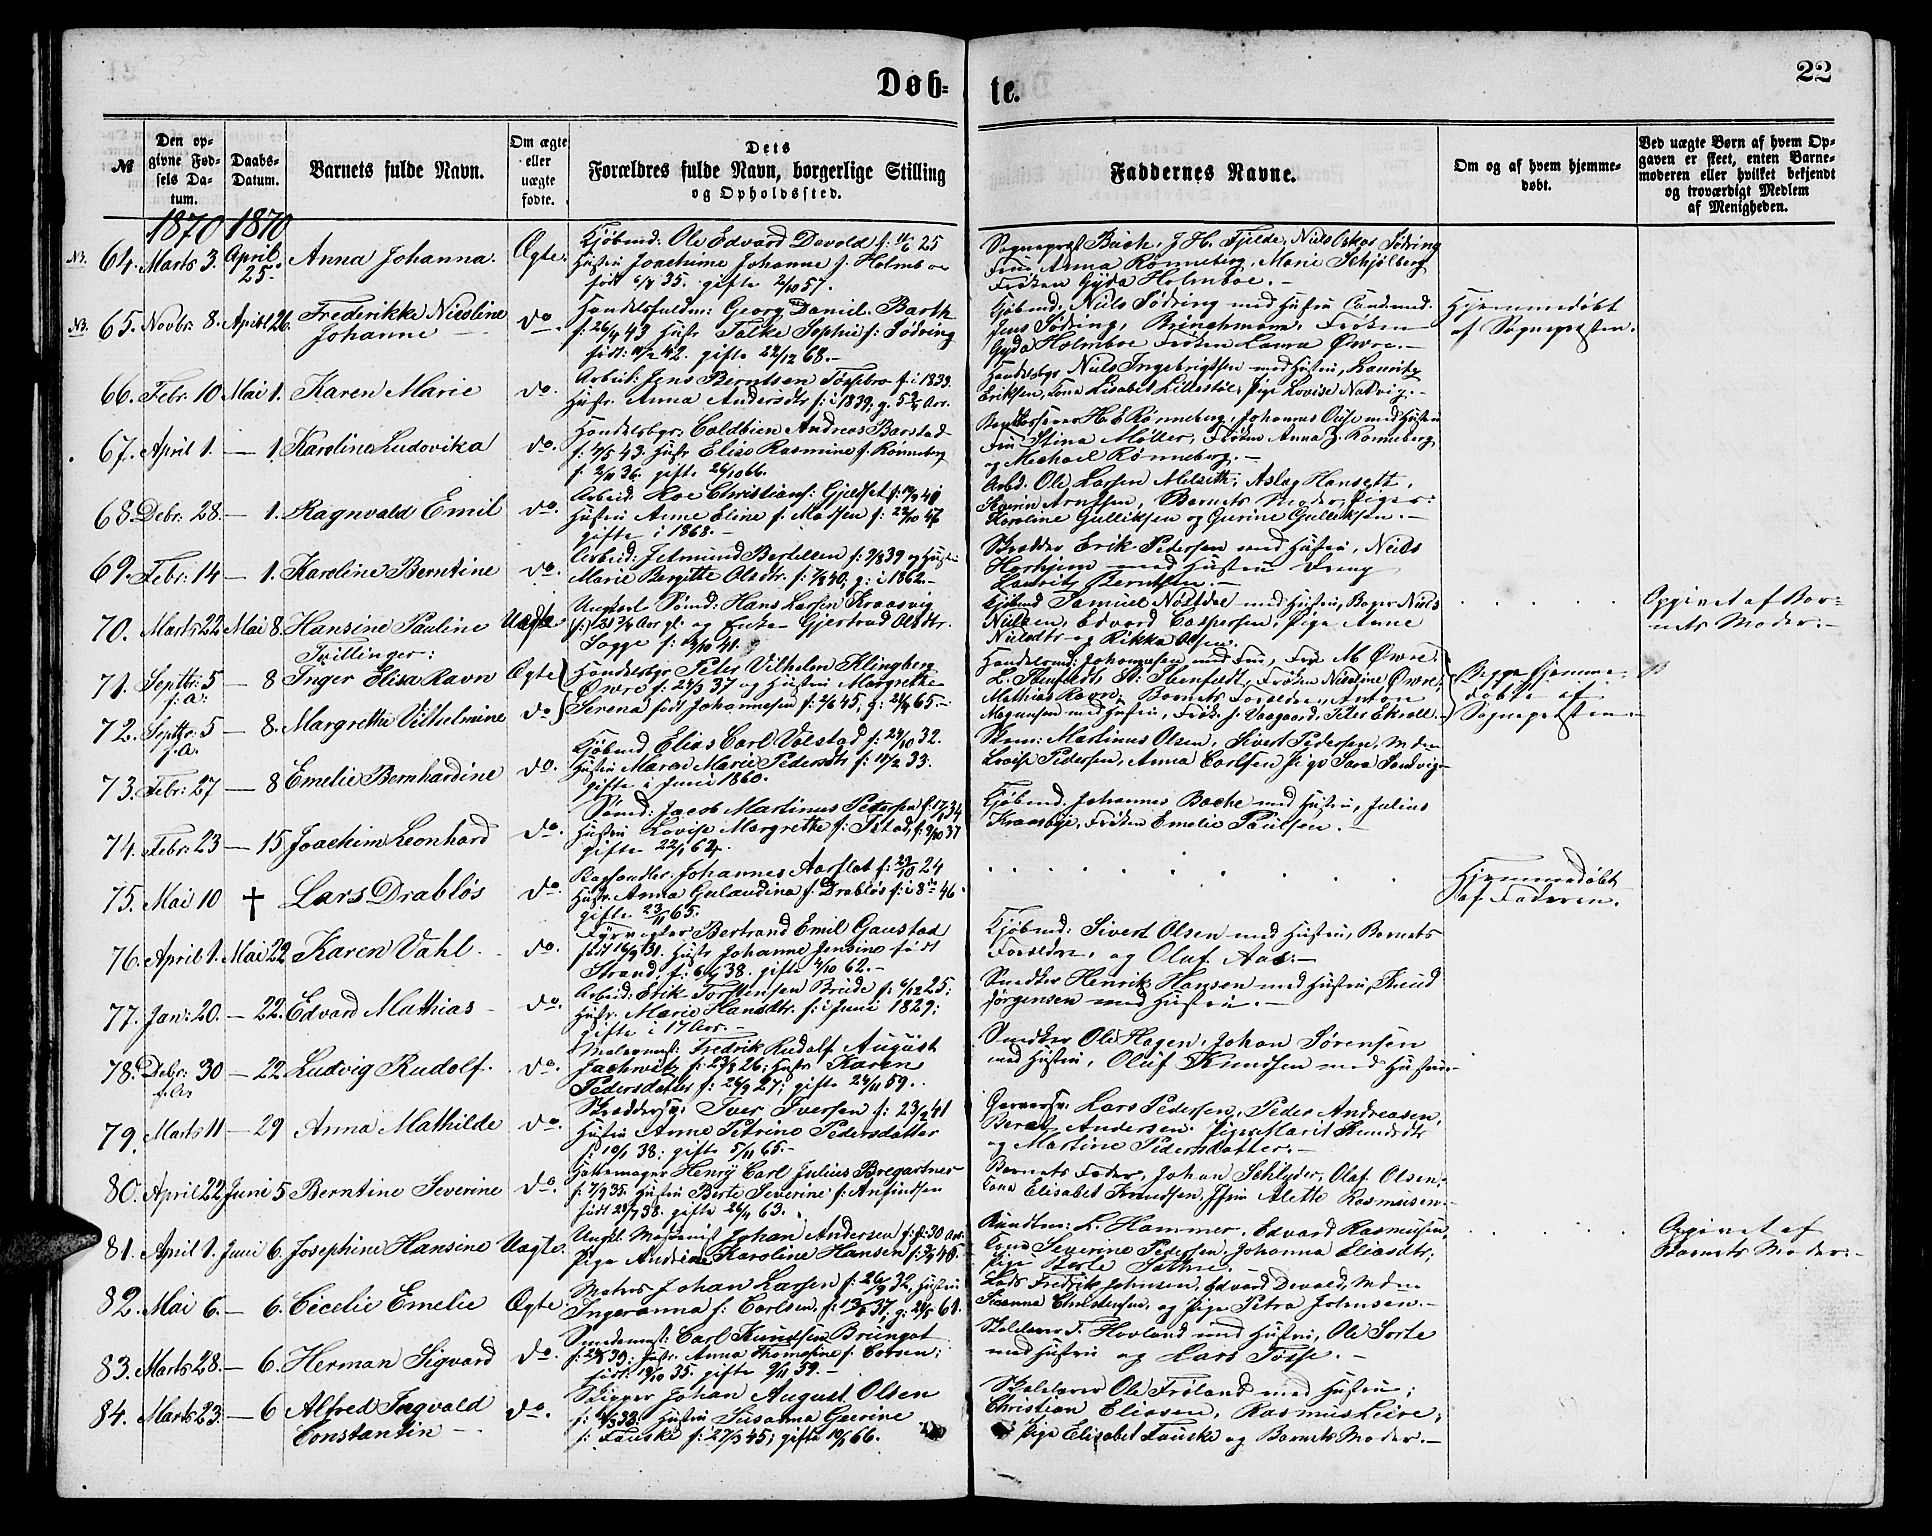 Døb-
te.
22
№
Den op-
givne Fød-
sels Da-
tum.
Daabs-
Datum.
Barnets fulde Navn.
Om ægte
eller
uægte
fødte.
Dets
Forældres fulde Navn, borgerlige Stilling
og Opholdssted.
Faddernes Navne.
Om og af hvem hjemme-
døbt.
Ved uægte Børn af hvem Op-
gaven er skeet, enten Barne-
moderen eller hvilket bekjendt
og troværdigt Medlem
af Menigheden.
1870 1870
NB. 64. Marts 3. April 25. Anna Johanna. Ægte.
Kjøbmd: Ole Edvard Devold f: 25
Hustru Joachime Johanne f. Holmboe
født 35. gifte 2/10 57.
Sognepræst Bach, J. H. Fjelde, Niels Sødring
Frue Anna Rønneberg, Marie Schjølberg
Frøken Gyda Holmboe.
NB. 65. Novbr: 8. April 26. Frederikke Nicoline
Johanne do
Handelsfuldm: Georg Daniel Barth
f: 26/4 43 Hustr. Talke Sophie f: Sødring
født: 42. gifte 22/12 68.
Kjøbmd: Niels Sødring med Hustru Candmed.
Jens Sødring, Brinchmann, Frøken
Gyda Holmboe Frøken Laura Øwre.
Hjemmedøbt
af Sognepræsten.
66. Febr: 10 Mai 1. Karen Marie do.
Arbeid: Jens Berntsen Tøssebro f: i 1833.
Hustr. Anna Andersdtr f: i 1839; g. Aar.
Handelsbgr Niels Ingebrigtsen med Hustru, Lauritz
Eriksen, Kone Lisabet Lillestøl, Pige Lovise Nadvig.
67. April 1. — 1. Karoline Ludovika do.
Handelsbgr: Coldbien Andreas Barstad
f: 43. Hustr Elise Rasmine f. Rønneberg
f: 36. gifte 26/10 66.
H. E. Rønneberg, Johannes Olse med Hustru
Fru Stina Møller, Frøken Anna J. Rønneberg
og Michael Rønneberg.
68. Debr: 28. — 1. Ragnvald Emil do.
Arbeid: Roe Christians: Gjeldset f: 41
Hustru Anne Eline f. Madsen f: 22/10 47
gifte i 1868.
Arbd. Ole Larsen Melseth, Aslag Hansett,
Karin Arntsen, Barnets Moder, Piger:
Karoline Gulliksen og Gurine Gulliksen.
69. Febr: 14 — 1. Karoline Berntine do.
Arbeid: Jetmund Bertelsen f: 2/8 39 og Hustru
Marie Bergitte Olsdtr. f: 7/8 40; g: i 1862.
Skrædder Erik Pedersen med Hustru, Niels
Harhjem med Hustru Dreng
Lauritz Berntsen.
70. Marts 22 Mai 8. Hansine Pauline Uægte
Ungkarl Sømd: Hans Larsen Kraasvig
Aar gl. og Enke Gjertrud Olsdtr.
Sogge f: 41.
Kjøbmd Samuel Nøstdal med Hustru, Bager Niels
Nielsen, Edvard Caspersen, Pige Anne
Nielsdtr og Rikka Olsen.
Opgivet af Bar-
nets Moder.
Tvillinger:
71. Septbr: 5 — 8 Inger Elisa Ravn Ægte
f: A:
72. Septbr: 5 — 8. Margrethe Vilhelmine do
f. A.
Handelsbgr Peter Vilhelm Klingberg
Øwre f: 24/3 37 og Hustru Margrethe
Serena født Johannesen f: 2/6 45, g: 65.
Handelsmd: Johannesen med Fru, Frk M. Øwre,
L. Stenfeldt St: Stenfeldt, Frøken Nicoline Øwre,
Mathias Ravn, Barnets Forældre, Anton
Magnusen med Hustru, Frøk: J. Vaagaard, Peter Ekroll.
Begge hjemme-
døbte af
Sognepræsten.
73. Febr: 27 — 8 Emelie Bernhardine do.
Kjøbmd. Elias Carl Valstad f: 24/10 32.
Hustru Maren Marie Pedersdtr f: 33.
gifte i Juni 1860.
Skom: Martinus Olsen, Sivert Pedersen, Mdm
Lovise Pedersen, Anna Carlsen Pige Sara Sandvig.
74. Febr: 23 — 15 Joachim Leonhard do.
Sømd: Jacob Martinus Petersen f: 34
Hustru Lovise Margrethe f: Istad, f: 2/10 37
gifte 22/1 62.
Kjøbmd. Johannes Bache med Hustru, Julius
Kraasbye, Frøken Emelie Paulsen.
75. Mai 10 † Lars Drabløs do.
Johannes Aarflot f: 29/10 24
Hustr. Anna Gulaudina f. Drabløs f: i 46.
gifte 23/11 65.
Hjemmedøbt
af Faderen.
76. April 1. Mai 22 Karen Vahl. do.
Fyrvogter Bertrand Emil Gaustad
født 16/9 31. Hustr Johanne Jensine født
Strand, f: 38. gifte 4/10 62.
Kjøbmd: Sivert Olsen med Hustru, Barnets
Forældre, og Oluf Aas.
77. Jan: 20. — 22. Edvard Mathias do.
Arbeid: Erik Torstensen Bride f: 6/12 25;
Hustr. Marie Hansdtr. f: i Juni 1829;
gifte i 17 Aar.
Snedker Henrik Hansen med Hustru, Knud
Jørgensen med Hustru.
78. Debr: 30 — 22 Ludvig Rudolf. do.
f. A.
Malermest: Fredrik Rudolf August
Jachwitz f: 23/8 26; Hustr Karen
Pedersdatter f: 26/9 27; gifte 24/11 59.
Snedker Ole Hagen, Johan Sørensen
med Hustru, Oluf Knudsen med Hustru.
79. Marts 11 — 29 Anna Mathilde do.
Skræddersv: Iver Iversen f: 23/2 41
Hustru Anne Petrine Pedersdatter
f: 19/1 38; gifte 5/11 65.
Garversv: Lars Pedersen, Peder Andreasen,
Berat Andersen. Pige Marit Knudsdtr
og Martine Pedersdatter.
80. April 22 Juni 5 Berntine Severine do.
Hattemager Henry Carl Julius Bregartner
f: 7/9 35. Hustru Berte Severine f: Anfindsen
født 28/7 38. gifte 26/4 63.
Barnets Fader, Johan Schlyder, Olaf Olsen,
Kone Elisabet Knudsen, Jfru Alette Rasmusen.
81. April 1. Juni 6. Josephine Hansine Uægte.
Ungkl. Johan Andersen f: 30 Aar.
Pige Andrea Karoline Hansen f: 40.
L. Hammer, Edvard Rasmusen,
Kone Severine Pedersen, Johanna Eliasdtr;
Pige Berte Sathre.
Opgivet af
Barnets Moder.
82. Mai 6. — 6. Cecelie Emelie Ægte
Matros Johan Larsen f: 26/9 32, Hustru
Ingeranna f: Carlsen, f: 37, g: 61.
Lods Fredrik Johnsen, Edvard Devold, Mdm
Susanne Christensen, og Pige Petra Johnsen.
83. Marts 28. — 6. Herman Sigvard do.
Carl Knudsen Brungot
f: 30; Hustr. Anna Thomasine f: Larsen;
født: 19/10 35. gifte 9/11 59.
Skolelærer T. Hovland med Hustru, Ole Sorte
med Hustru og Lars Tosse.
84. Marts 23. — 6 Alfred Ingvald
Constantin do.
Skipper Johan August Olsen
f: 33; Hustru Susanna Gurine
f: Fauske f: 27/3 45; gifte 66.
Skolelærer Ole Frøland med Hustru;
Christian Eliasen, Rasmus Leire,
Pige Elisabet Fauske og Barnets Moder.